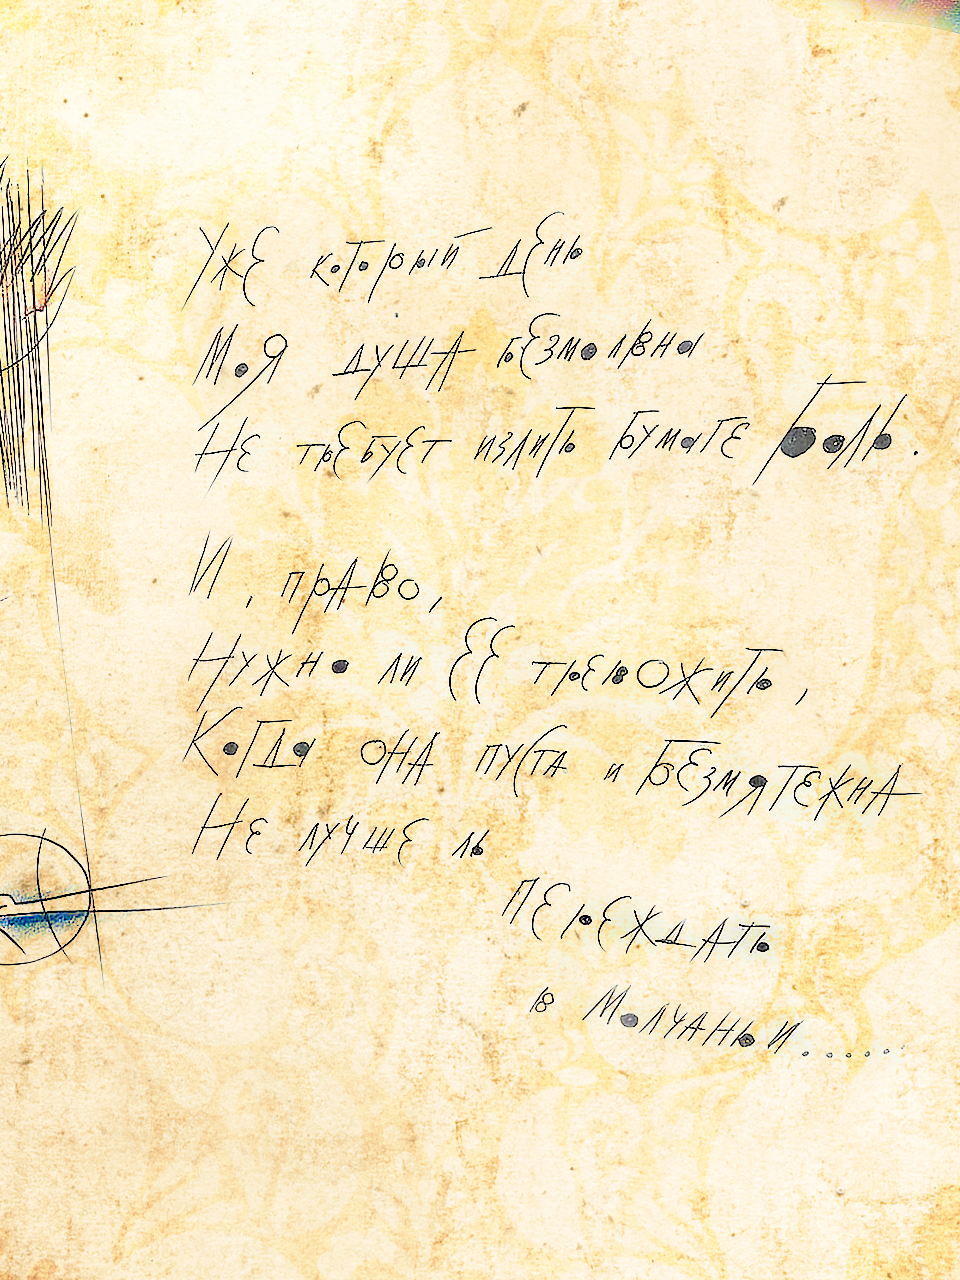 Уже который день
Моя душа безмолвна
Не требует излить бумаге Боль.
И, право,
Нужно ли ЕЁ тревожить,
Когда она пуста и Безмятежна
Не лучше ль
Переждать
в Молчаньи......